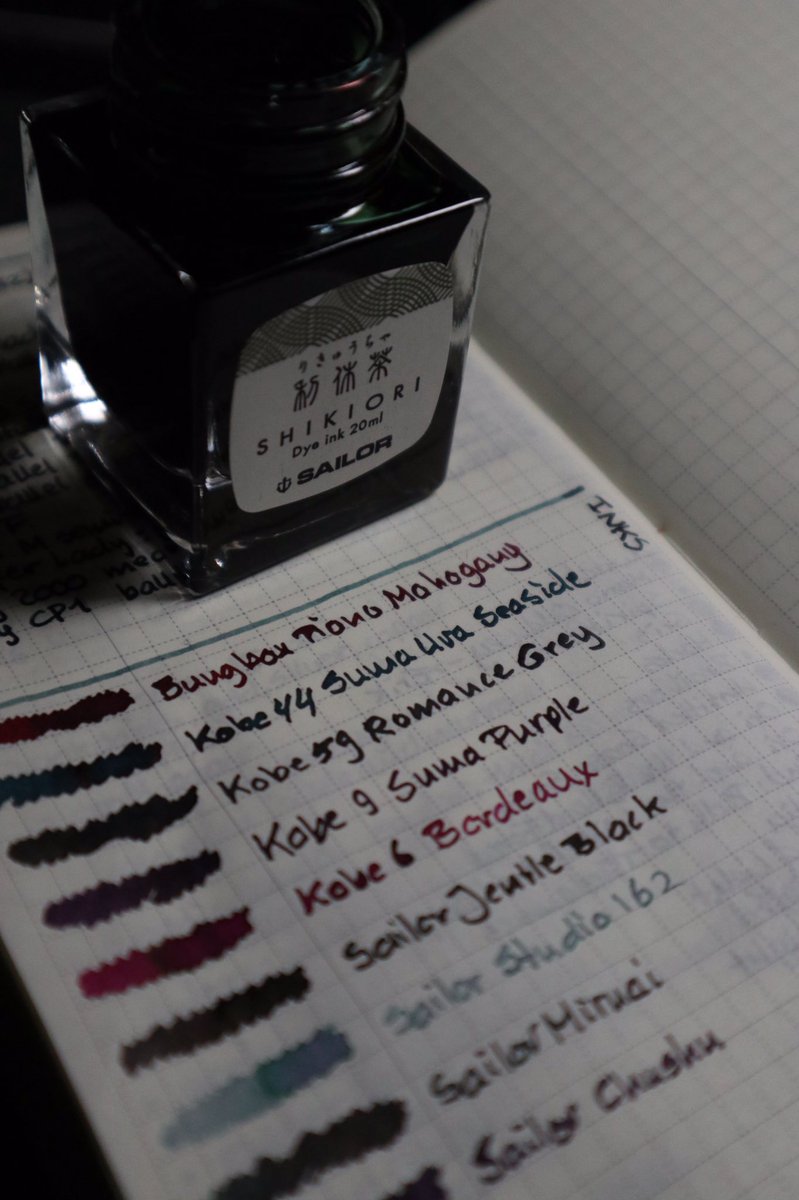 りきゅうちゃ
利休茶
SHIKIORI
Dye ink 20ml
SAILOR
INKS
M
2000 med
CP1 ball
Bungbox Piano Mahogany
Kobe 44 Suma Ura Seaside
Kobe 59 Romance Grey
Kobe 9 Suma Purple
Kobe 6 Bordeaux
Sailor Jentle Black
Sailor Studio 162
Sailor Miruai
Sailor Chushu